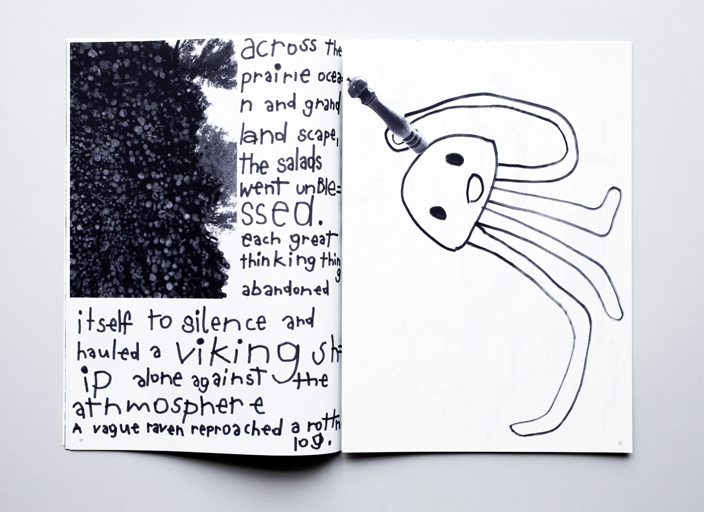 across the
prairie ocea
n and grand
land scape,
the salads
went unBle=
ssed.
each great
thinking thin
g
abandoned
itself to silence and
hauled a viking sh=
ip alone against the
athmosphere
A vague raven reproached a rottn
log.